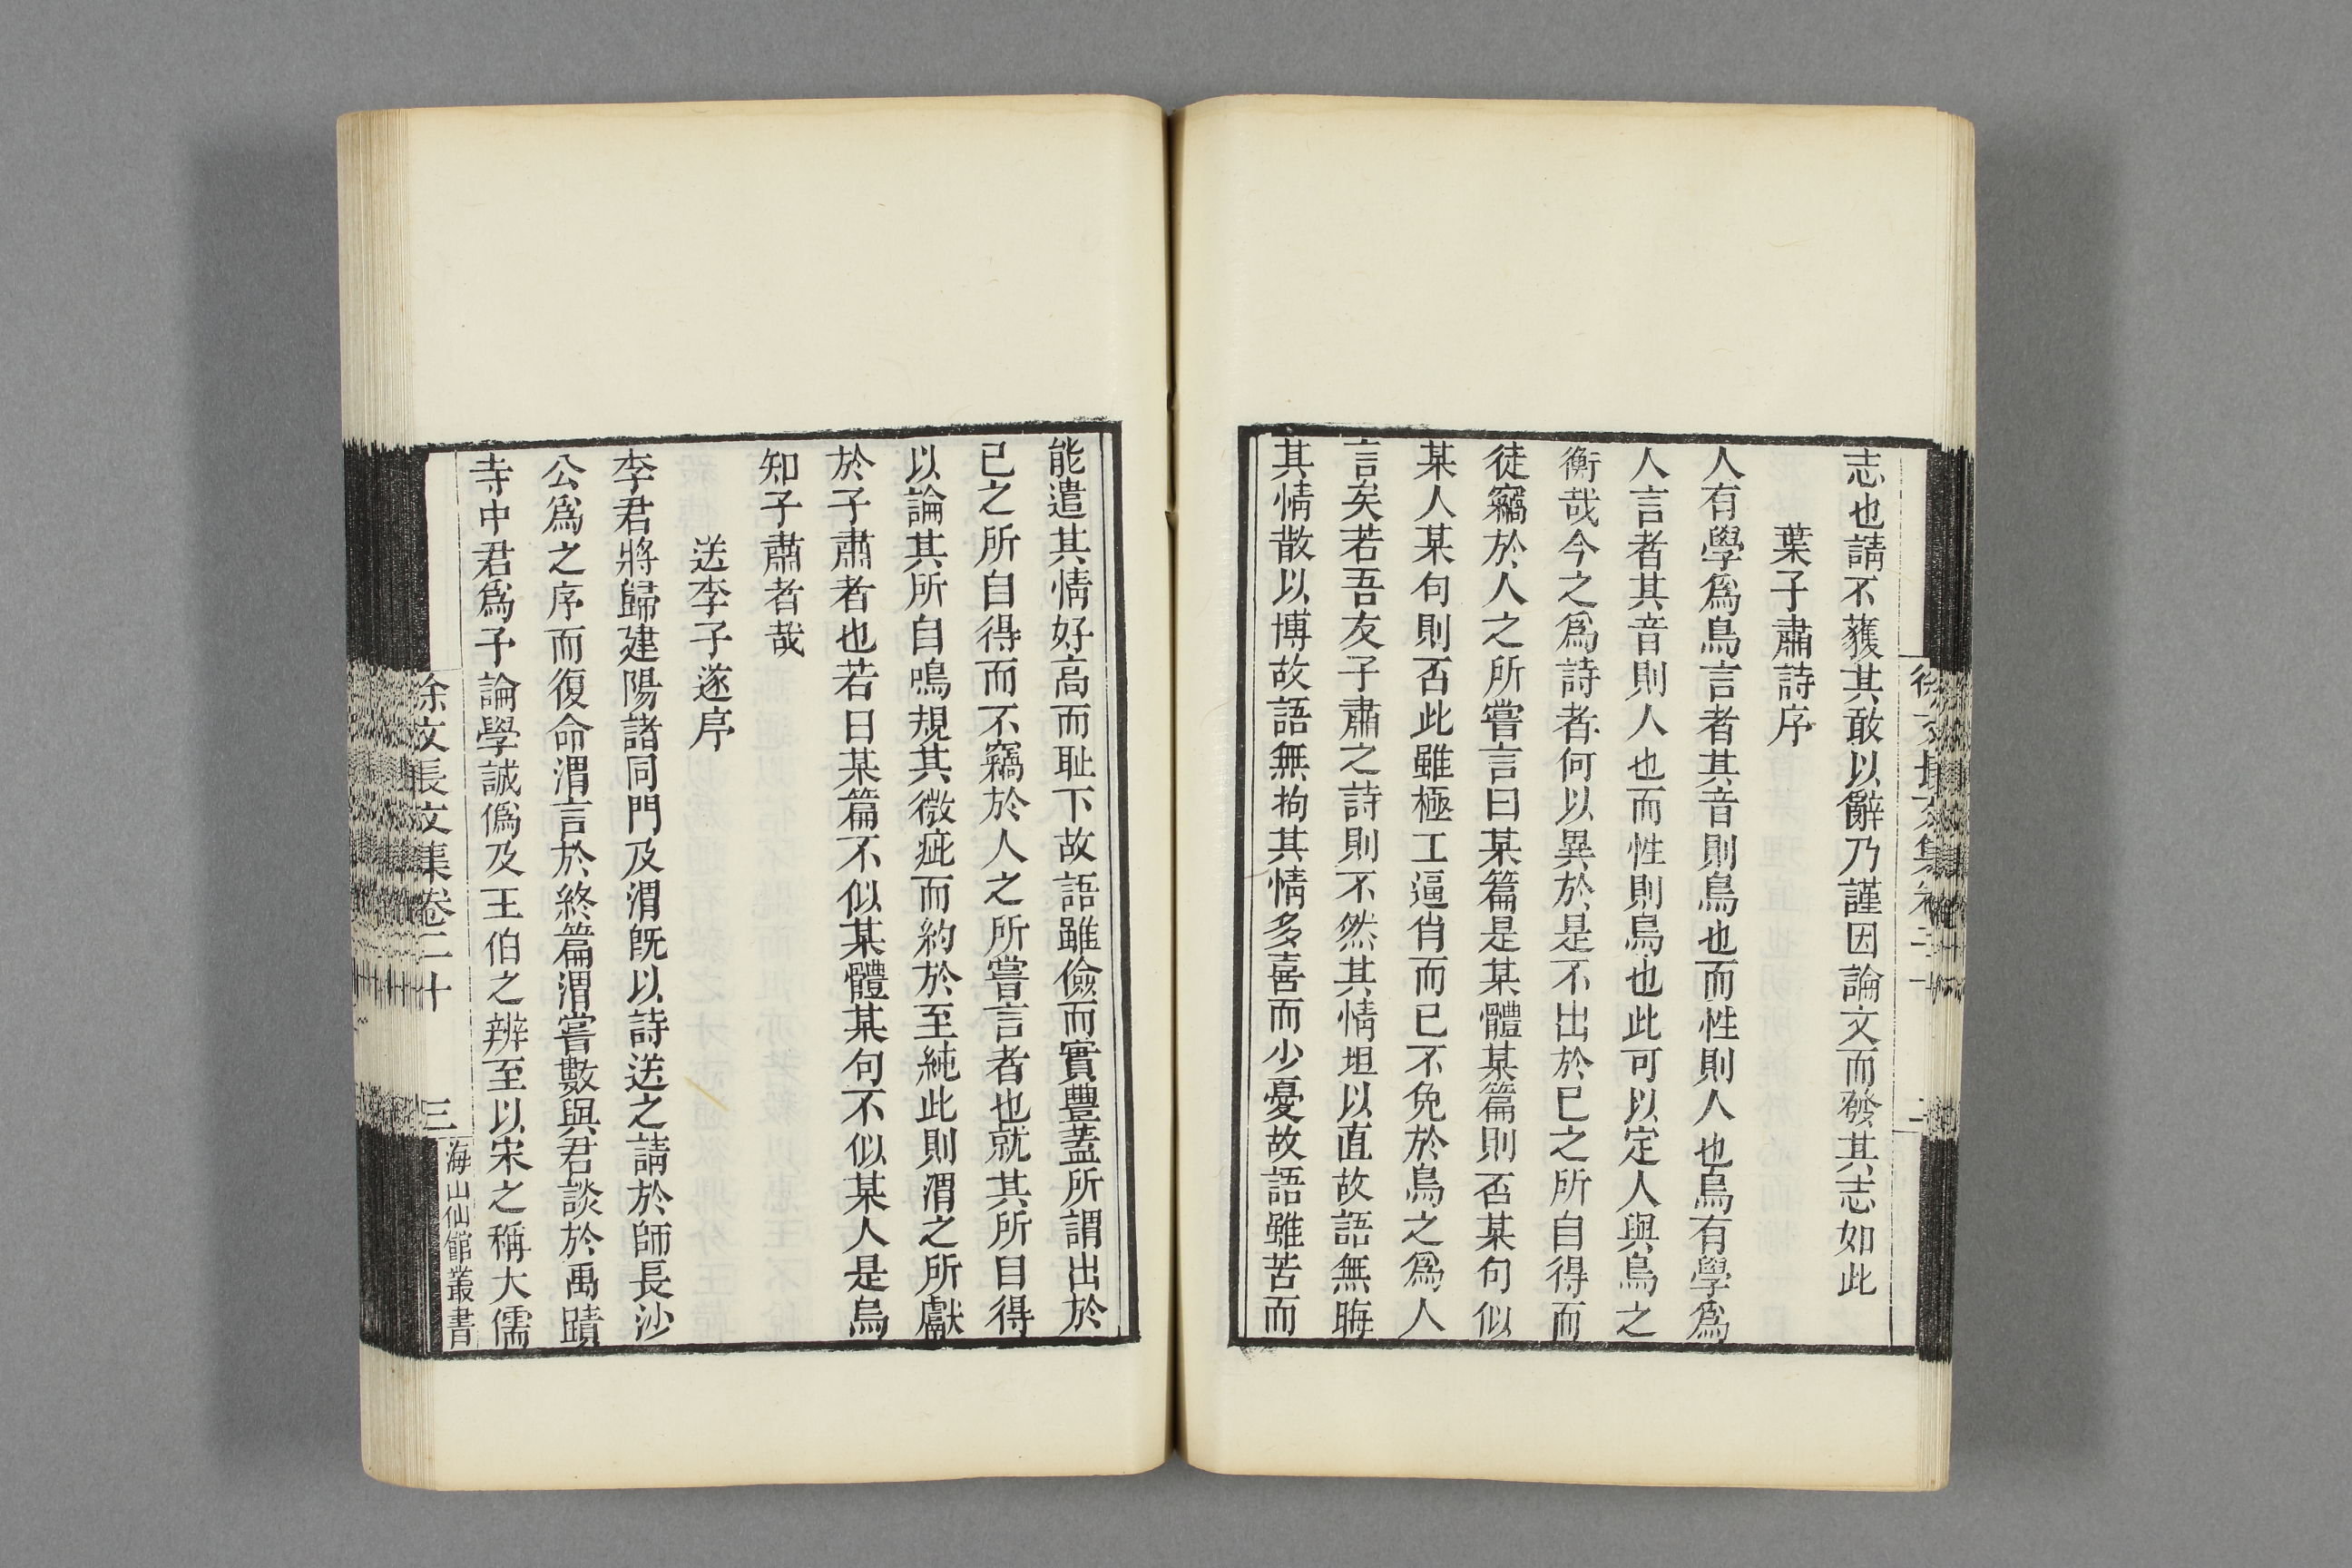 志也請不獲其敢以辭乃謹因論文而發其志如此
葉子肅詩序
人有學爲鳥言者其音則鳥也而性則人也鳥有學爲
人言者其音則人也而性則鳥也此可以定人與鳥之
衡哉今之爲詩者何以異於是不出於已之所自得而
徒竊於人之所嘗言曰某篇是某體某篇則否某句似
某人某句則否此雖極工逼肖而已不免於鳥之爲人
言矣若吾友子肅之詩則不然其情坦以直故語無晦
其情散以博故語無拘其情多喜而少憂故語雖苦而
能遣其情好高而耻下故語雖儉而實豐蓋所謂出於
已之所自得而不竊於人之所嘗言者也就其所自得
以論其所自鳴規其微疵而約於至純此則渭之所獻
於子肅者也若曰某篇不似某體某句不似某人是烏
知子肅者哉
送李子遂序
李君將歸建陽諸同門及渭旣以詩送之請於師長沙
公爲之序而復命渭言於終篇渭嘗數與君談於禹蹟
寺中君爲予論學誠僞及王伯之辨至以宋之稱大儒
徐文長文集卷二十
三
海山仙館叢書